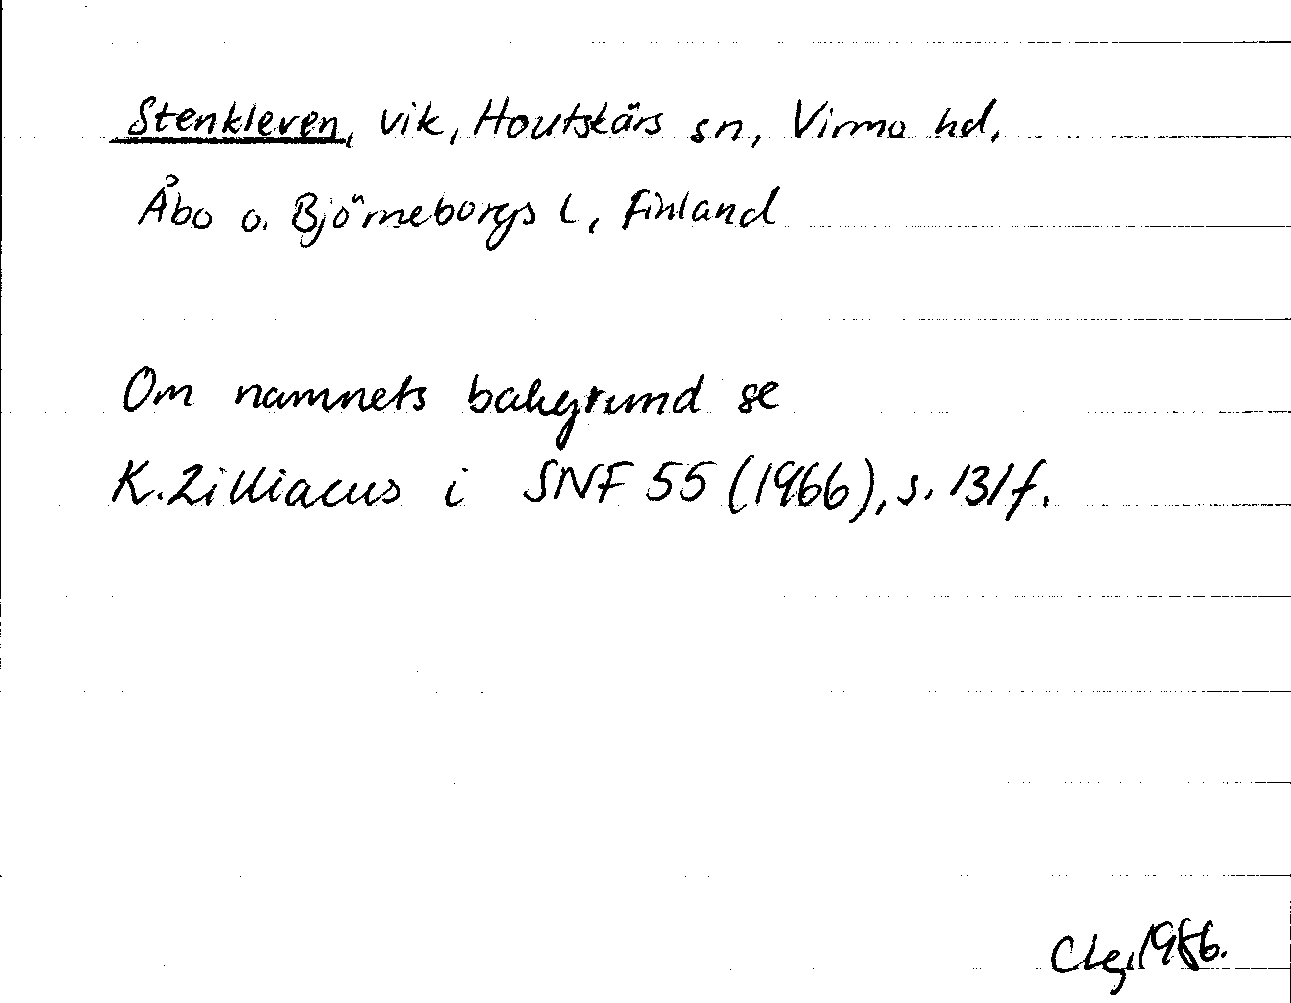 Stenkleven, vik, Houtskärs sn, Virmo hd,
Åbo o. Björneborgs l, Finland
Om namnets bakgrund se
K. Zilliacus i SNF 55 (1966), s. 131f.
CLg, 1986.